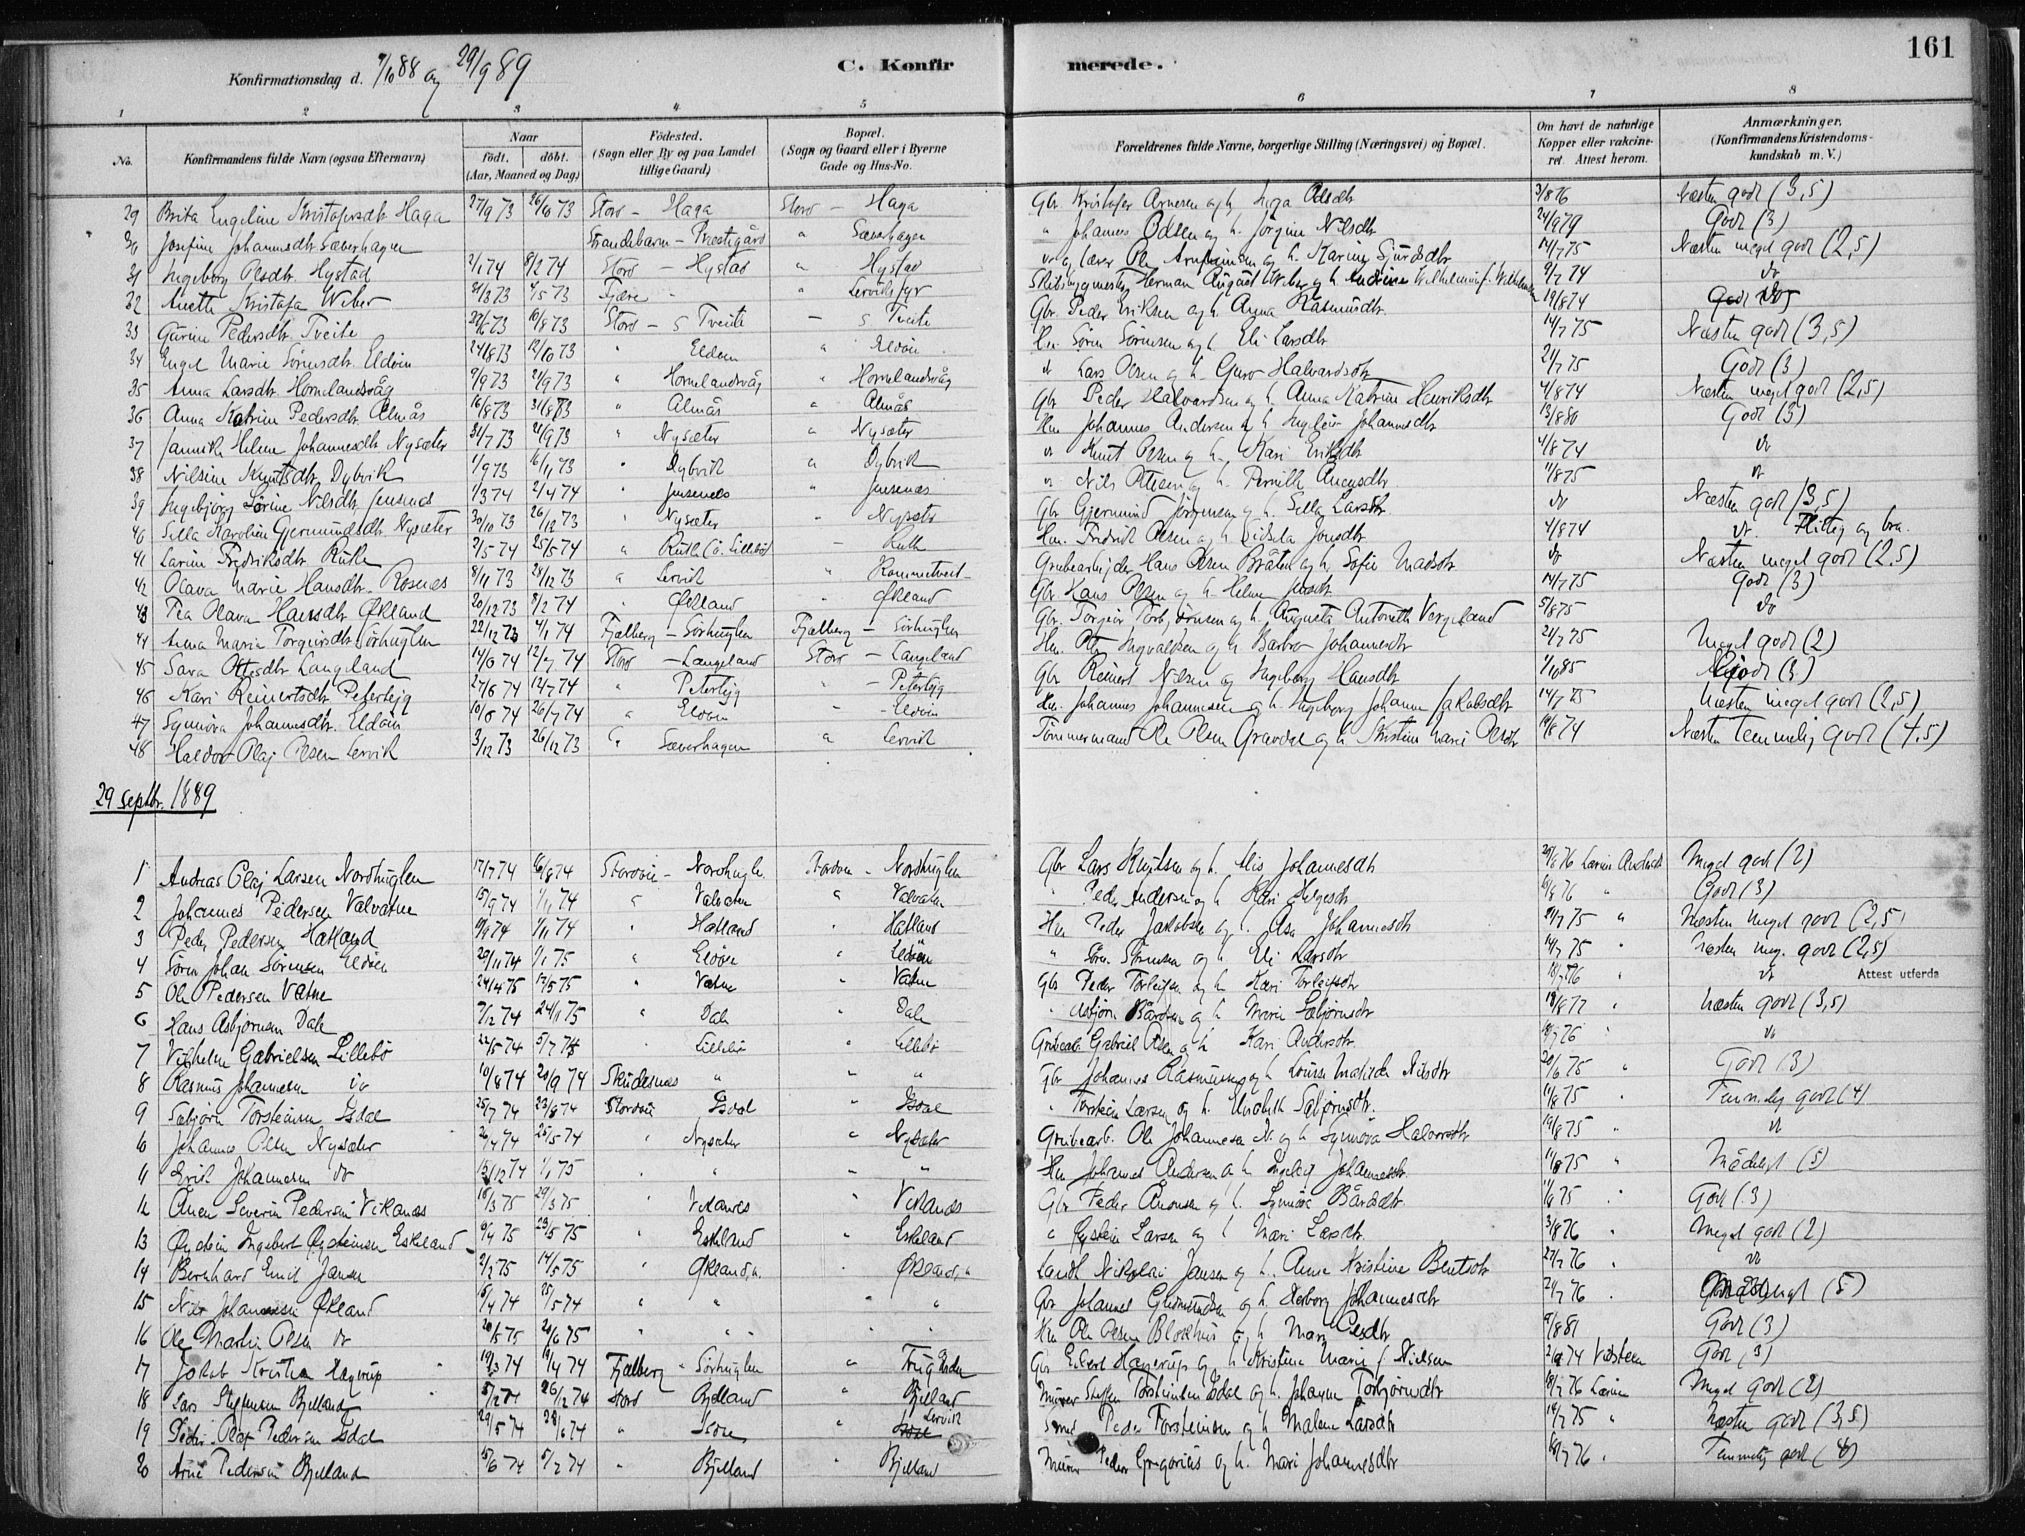 161
Konfirmationsdag d. 7/10 88 og 29/9 89 C. Konfirmerede.
1 2 3 4 5 6 7 8
No. Konfirmandens fulde Navn (ogsaa Efternavn) Naar født. døbt. (Aar, Maaned og Dag) Fødested. (Sogn eller By og paa Landet tillige Gaard) Bopæl. (Sogn og Gaard eller i Byerne Gade og Hus-No. Forældrenes fulde Navne, borgerlige Stilling (Næringsvei) og Bopæl. Om havt de naturlige Kopper eller vakcineret. Attest herom. Anmærkninger. (Konfirmandens Kristendomskundskab m. V.)
29 Brita Engeline Kristofersdtr Haga 27/9 73 26/10 73 Stord - Haga Stord - Haga Gbr. Kristofer Arnesen og h. Inga Olsdtr 3/8 76 Næsten godt (3,5)
30 Josefine Johannesdtr Sæverhagen Strandebarm - Præstegård " Sæverhagen " Johannes Odsen og h. Jørgine Nilsdtr 24/9 79 Godt (3)
31 Ingeborg Olsdtr. Hystad 2/1 74 8/2 74 Stord - Hystad " Hystad Ole og h. Karine Sjursdtr 14/7 75 Næsten meget godt (2,5)
32 Anette Kristofa Weber 4/5 73 Fjære " Lerviks fyr Skibsbygmester Herman August Weber og h. 9/7 74 do
33 Gurine Pedersdtr. Tveite 10/8 73 Stord - S Tveite - S Tveite Gbr. Peder Eriksen og h. Anna Rasmusdtr. 19/8 74 do
34 Engel Marie Sørensdtr. Eldøen 24/8 73 12/10 73 " Eldøen " Eldøen Hu. Søren Sørensen og h. Eli Larsdtr 14/7 75 Næsten godt (3,5)
35 Anna Larsdtr. Hornelandsvåg 7/9 73 21/9 73 " Hornelandsvåg " Hornelandsvåg Lars Olsen og h. Guro Halvardsdtr 21/7 75 Godt (3)
36 Anna Katrine Pedersdtr Almås 16/8 73 31/8 73 " Almås " Almås Gbr Peder Halvardsen og h. Anna Katrine Henriksdtr 4/8 74 Næsten meget godt (2,5)
37 Jannikke Helene Johannesdtr Nysæter 31/7 73 21/9 73 " Nysæter " Nysæter Hm Johannes Andersen og h. Johannesdtr 13/8 80 Godt (3)
38 Nilsine Knutsdtr. Dybvik 1/9 73 16/11 73 " Dybvik " Dybvik Knut Olsen og h. Kari Eriksdtr 4/8 74 do
39 Ingebjørg Sørine Nilsdtr Jensenes 1/3 74 2/4 74 " Jensenes " Jensenes Nils Ottesen og h. Pernille 11/8 75
40 Sella Karoline Gjermundsdtr. Nysæter 30/10 73 26/12 73 " Nysæter - Nysæter Gbr. Gjermund Jørgensen og h. Sella Larsdtr. do Næsten godt (3,5)
41 Larine Fredriksdtr Rutle 2/5 74 25/5 74 " Rutle Lillebø - Rutle Hm. Fredrik Olsen og h. Jonsdtr 4/8 74 do. Flittig og bra.
42 Olava Marie Hansdtr. Rosenes 8/11 73 28/12 73 " Lervik " Rommetveit Grubearbejder Hans Olsen Bråten og h. Sofie Madsdtr do Næsten meget godt (2,5)
43 Pea Olava Hansdtr Økland 20/12 73 8/2 74 " Økland " Økland Gbr Hans Olsen og h. Helene 14/7 75 Godt (3)
44 Anna Maria Torgeirsdtr. Sørhuglen 22/12 73 4/1 74 Fjelberg - Sørhuglen Fjelberg - Sørhuglen Gbr. Torgeir Torbjørnsen og h. Augusta Antonette Vergeland 5/8 75 do
45 Sara Ottesdtr Langeland 14/6 74 12/7 74 Stord - Langeland Stord - Langeland Hm. Otte Ingvaldsen og h. Barbro Johannesdtr 21/7 75 Meget godt (2)
46 Kari Reinertsdtr Peterteig 27/6 74 12/7 74 " Peterteig " - Peterteig Gbr Reinert Nilsen og Ingeborg Hansdtr 1/10 85 Godt (3)
47 Synnøva Johannesdtr. Eldøen 10/6 74 26/7 74 " Eldøen - - Eldøen Hu. Johannes Johannesen og h. Ingeborg Johanne Jakobsdtr 14/7 75 Næsten meget godt (2,5)
48 Haldor Olaj Olsen Lervik 3/12 73 26/12 73 " Sæverhagen " Lervik Tømmermand Ole Olsen Gravdal og h. Kristine Marie Olsdtr 19/8 74 Næsten temmelig godt (4,5)
29 septbr. 1889
1 Andreas Olaj Larsen Nordhuglen 17/7 74 16/8 74 Stordøen - Nordhugle. Stordøen - Nordhuglen Gbr Lars Knutsen og h. Johannesdtr 29/8 76 Meget godt (2)
2 Johannes Pedersen Valvatne 13/9 74 1/11 74 " Valvatne " Valvatne " Peder Andersen og h. Kari Helgesdtr 10/8 76 " Godt (3)
3 Peder Pedersen Hatland 9/9 74 1/11 74 " Hatland " Hatland Hm Peder Jakobsen og h. Asa Johannesdtr 14/7 75 " Næsten meget godt (2,5)
4 Søren Johan Sørensen Eldøen 20/11 74 1/1 75 " Eldøen " Eldøen " Søren Sørensen og h. Eli Larsdtr 14/7 75 " Næsten meg. godt (2,5)
5 Ole Pedersen Vatne 24/4 75 17/5 75 " Vatne " Vatne Gbr Peder Torleifsen og h Kari Torleifsdtr 18/7 76 " do Attest utferda
6 Hans Asbjørnsen Dale 7/12 74 24/1 75 " Dale " Dale " Asbjørn Bårdsen og h. Marie Sæbjørnsdtr 18/8 77 " Næsten godt (3,5)
7 Vilhelm Gabrielsen Lillebø 22/5 74 5/7 74 " Lillebø " Lillebø Grubearb. Gabriel Olsen og h Kari Andersdtr. 18/7 76 " do
8 Rasmus Johannesen do 10/8 74 20/9 74 Skudesnes " " " Gbr Johannes Rasmussen og h Lovise Matilde Nilsdtr 20/6 75 " Godt (3)
9 Sæbjørn Torsteinsen Isdal 25/7 74 23/8 74 Stordøen Isdal " Isdal " Torstein Larsen og h. Sæbjørnsdtr. 11/8 75 " Temmelig godt (4)
10 Johannes Olsen Nysæter 26/4 74 25/5 74 " Nysæter " Nysæter Grubearb. Ole Johannesen N. og h. Synnøva Halvorsdtr 19/8 75 " do
11 Erik Johannesen do 13/12 74 1/1 75 " " " " Hm Johannes Andersen og h. Johannesdtr. 11/8 75 " Mådeligt (5)
12 Ånen Severin Pedersen Vikanes 18/3 75 29/3 75 " Vikanes " Vikanes Gbr Peder Ånensen og h. Synnøve Bårdsdtr. 1/6 75 " Godt (3)
13 Øystein Ingebert Øysteinsen Eskeland 6/4 75 23/5 75 " Eskeland " Eskeland " Øystein Larsen og h Mari Larsdtr 3/8 76 " Meget godt (2)
14 Bernhard Emil Jansen 2/2 75 14/5 75 " Økland, n. " Økland, n Landh. Nikolai Jansen og h. Anne Kristine Bentsdtr 27/7 76 " do
15 Nils Johannesen Økland 15/4 74 25/5 74 " " " " Gbr Johannes Gudmundsen og h. Herborg Johannesdtr 24/7 76 " (5)
16 Ole Martin Olsen do 20/5 75 20/6 75 " " " " Hm Ole Olsen Blokhus og h Mari Olsdtr 9/8 81 Godt (3)
17 Jakob Kristian Hagerup 19/3 74 19/4 74 Fjelberg " Sørhuglen " Gbr Eilert Hagerup og h Kristine Marie f Nielsen 2/9 74 Godt (3)
18 Lars Steffensen Bjelland 5/12 74 26/12 74 Stord Bjelland " Bjelland Murer Steffen Torsteinsen Isdal og h. Johanne Torbjørnsdtr 18/7 76 Meget godt (2)
19 Peder Olaf Pedersen Isdal 29/5 74 28/6 74 " Isdal " Lervik Smed Peder Torsteinsen og h Malene Larsdtr 14/7 75 " Næsten godt (3,5)
20 Arne Pedersen Bjelland 15/6 74 5/7 74 " Bjelland " Bjelland Murer Peder Gregorius og h. Mari Johannesdtr 18/7 76 " Temmelig godt (4)